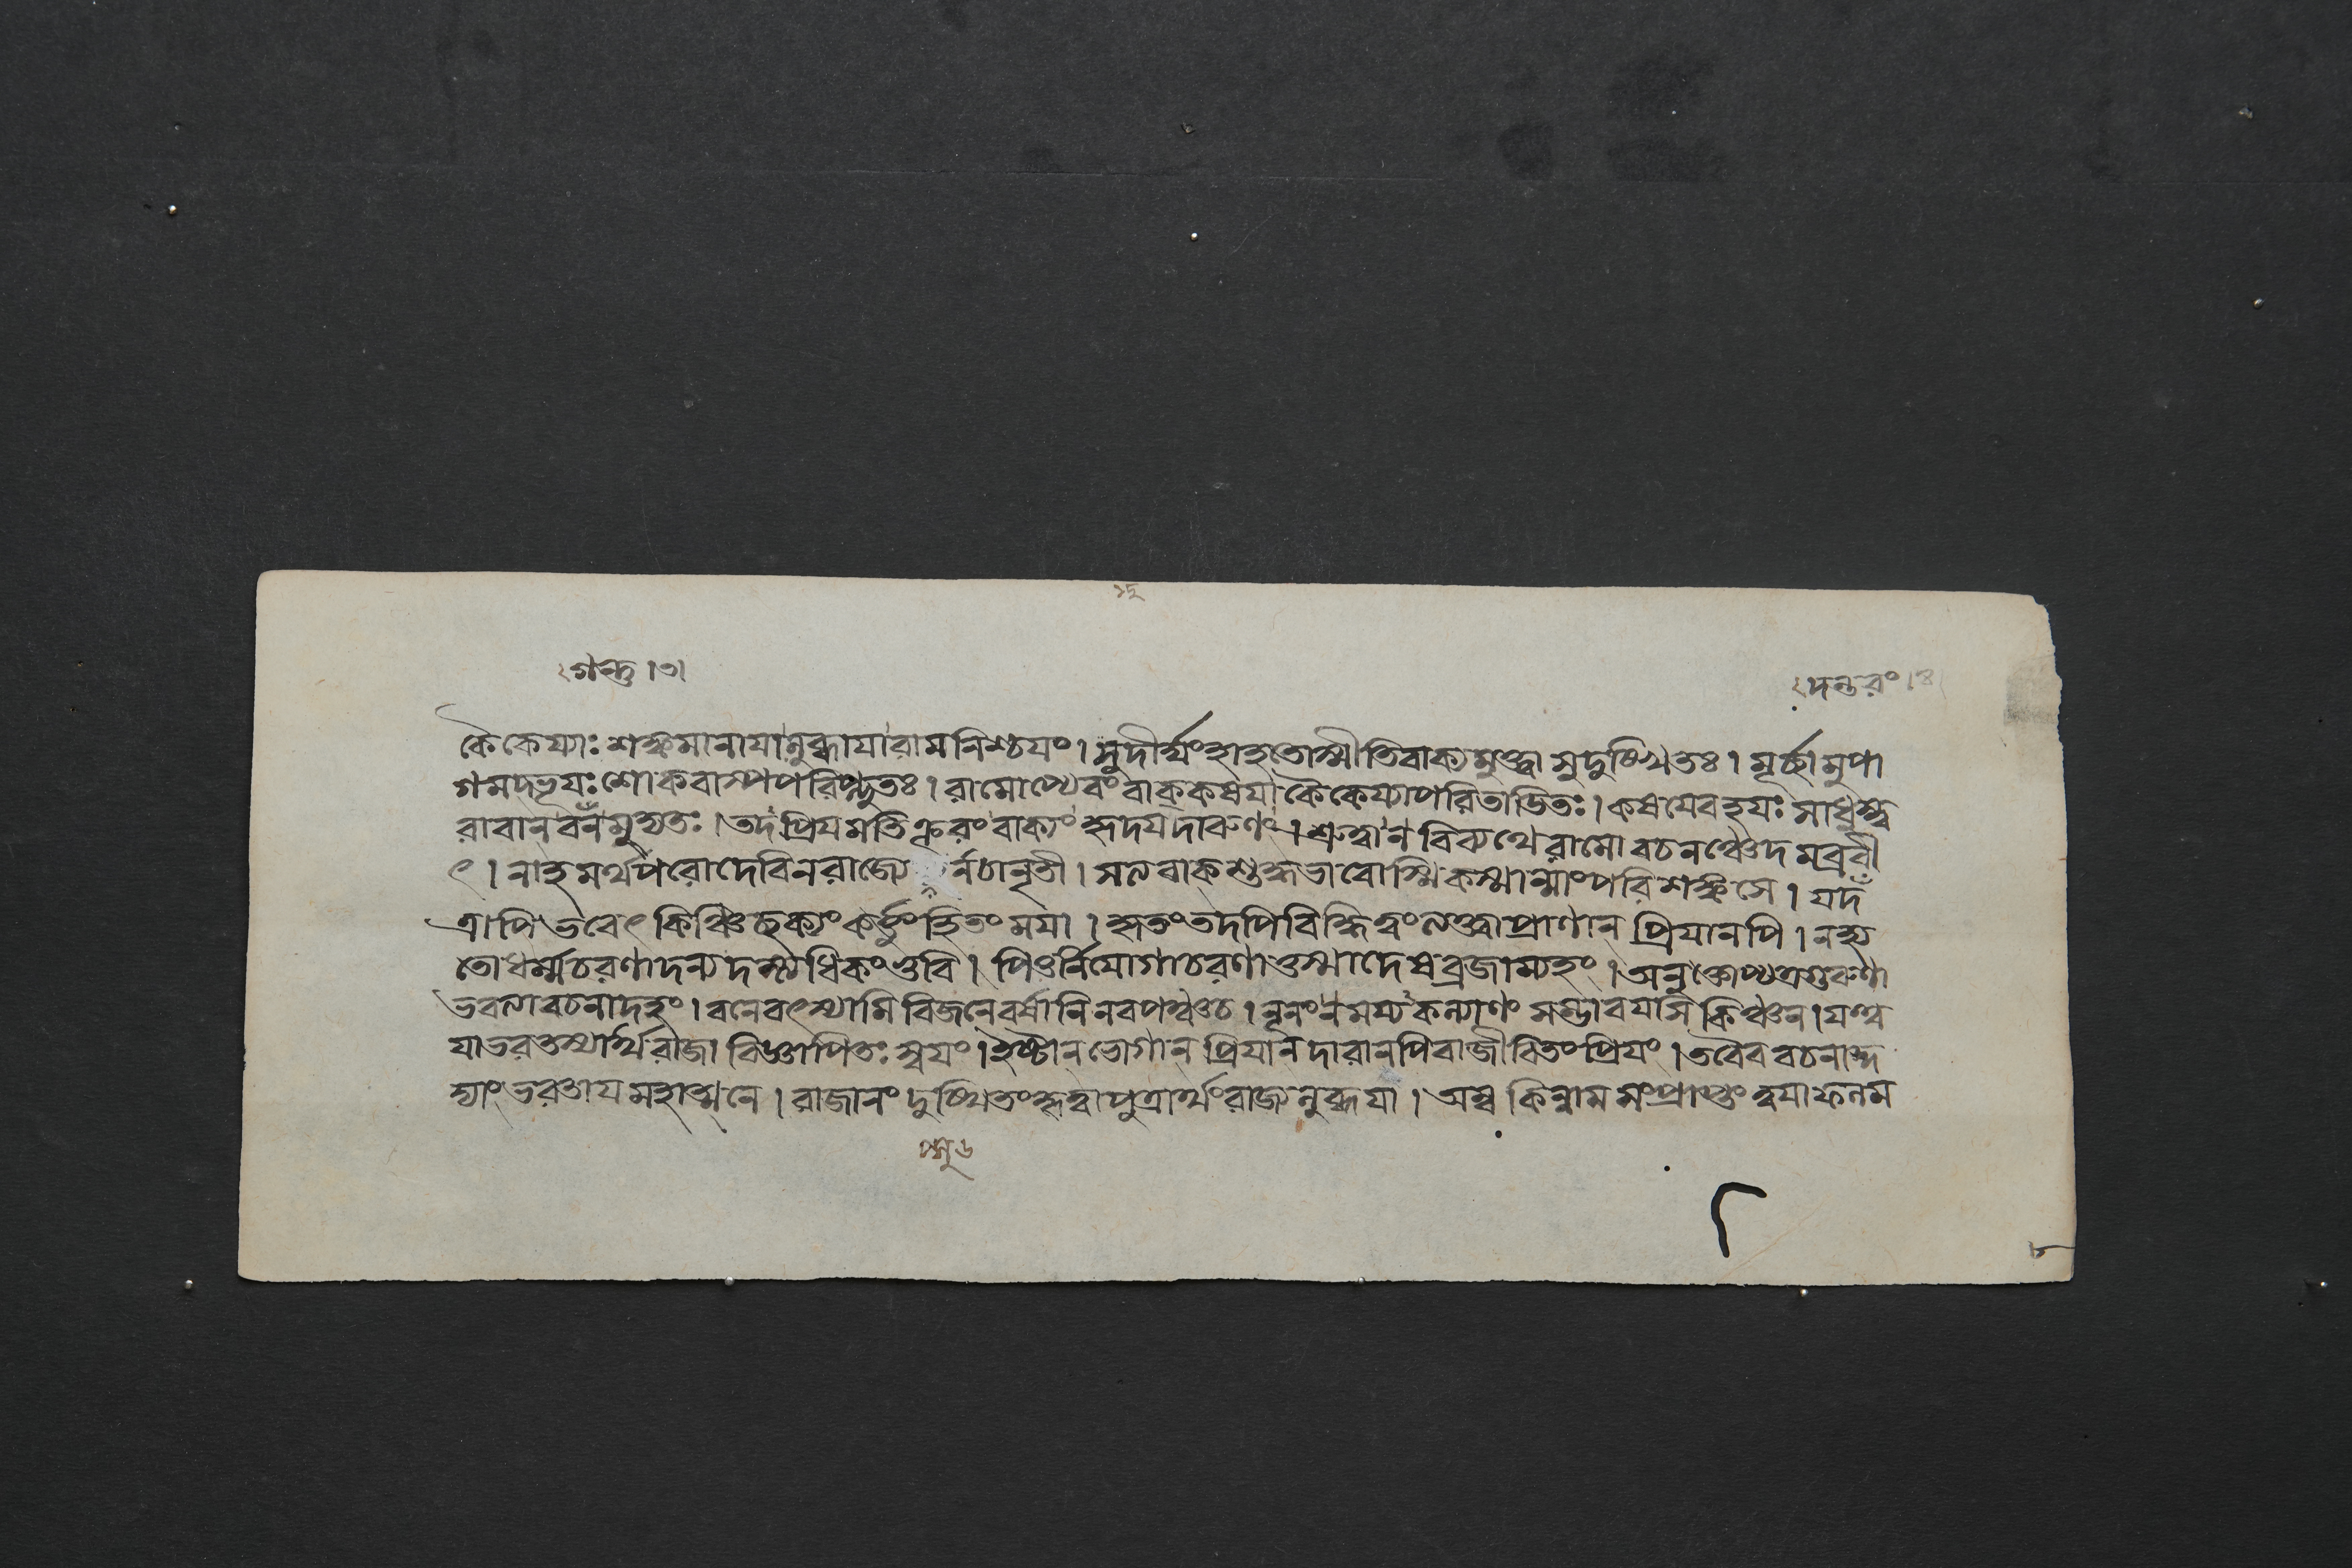 গন্তু । ৩ ।
দন্তরং । ৪ ।
কৈকেয্যাঃ শঙ্কমানাযা নুব্ধাযা রামনিশ্চযং । সুদীর্ঘং হা হতোস্মীতি বাক্যমুক্ত্বা সুদুঃখিতঃ । মূর্চ্ছামুপা
গমদ্ভূযঃ শোকবাষ্পপরিপ্লুতঃ । রামোপ্যেবং বাক্কশযা কৈকেয্যা পরিতাডিতঃ । কশযেব হযঃ সাধুস্ত্ব
রাবান্ বনমুদ্যতঃ । তদপ্রিযমতিক্রূরং বাক্যং হৃদযদারুণং । শ্রুত্বা ন বিব্যথে রামো বচনঞ্চেদমব্রবী
ৎ । নাহমর্থপরো দেবি ন রাজ্যে র্নচানৃতী । সনবাক শুদ্ধভাবোস্মি কস্মান্মাং পরিশঙ্কসে । যদ
ত্রাপি ভবেৎ কিঞ্চিচ্ছক্যং কর্ত্তুং হিতং মযা । কৃতং তদপি বিদ্ধি ত্বং নক্ত্বা প্রাণান্ প্রিযানপি । নহ্য
তো ধর্ম্মচরণাদন্যদস্ত্যধিকং ভুবি । পিতুর্নিযোগাচরণাত্তস্মাদেষ ব্রজাম্যহং । অনুক্তোপ্যত্র গুরুণা
ভবত্যা বচনাদহং । বনে বৎস্যামি বিজনে বর্ষানি নব পঞ্চ চ । নূনং ন মম্য কন্যাণং সম্ভাবযসি কিঞ্চন । যত্ত্ব
যা ভরতস্যার্থে রাজা বিজ্ঞাপিতঃ স্বযং । ইষ্টান্ ভোগান্ প্রিযান্ দারানপি বা জীবিতং প্রিযং । তবৈব বচনাদ্দ
দ্যাং ভরতায মহাত্মনে । রাজানং দুঃখিতং কৃত্বা পুত্রার্থং রাজ্যনুব্ধযা । অম্ব কিন্নাম সংপ্রাপ্তং ত্বযা ফলম